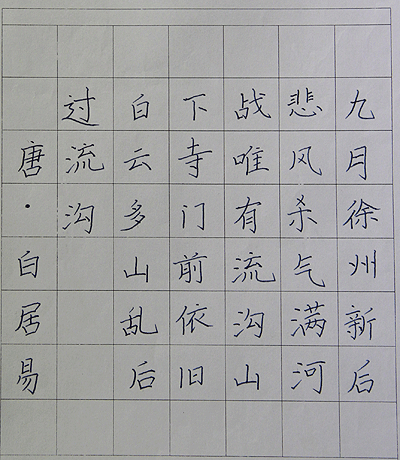 九月徐州新后
悲风杀气满河
战唯有流沟山
下寺门前依旧
白云多山乱后
过流沟
唐·白居易